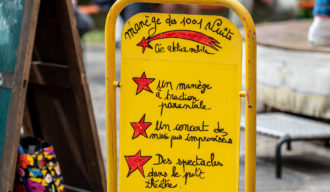 manège des 1001 Nuits
Cie
un manège
à traction
parentale
un concert de
musiques improvisées
Des spectacles
dans le p'tit
théâtre